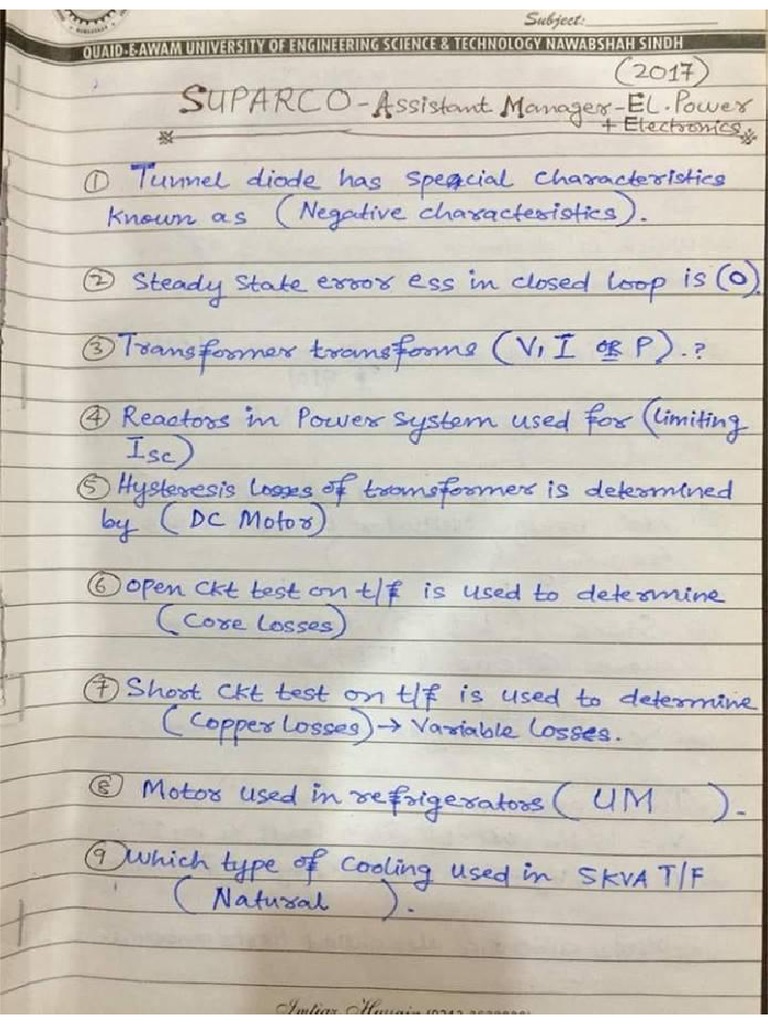 Subject:
QUAID-E-AWAM UNIVERSITY OF ENGINEERING SCIENCE & TECHNOLOGY NAWABSHAH SINDH
(2017)
SUPARCO - Assistant Manager - EL. Power
+ Electronics
① Tunnel diode has special characteristics
known as (Negative characteristics).
② Steady State error ess in closed loop is (0).
③ Transformer transforms (V, I OR P). ?
④ Reactors in Power system used for (limiting
Isc)
⑤ Hysteresis losses of transformer is determined
by (DC Motor)
⑥ open ckt test on t/f is used to determine
(Core Losses)
⑦ Short ckt test on t/f is used to determine
(Copper Losses) → Variable Losses.
⑧ Motor used in refrigerators ( UM ).
⑨ which type of cooling used in 5KVA T/F
( Natural ).